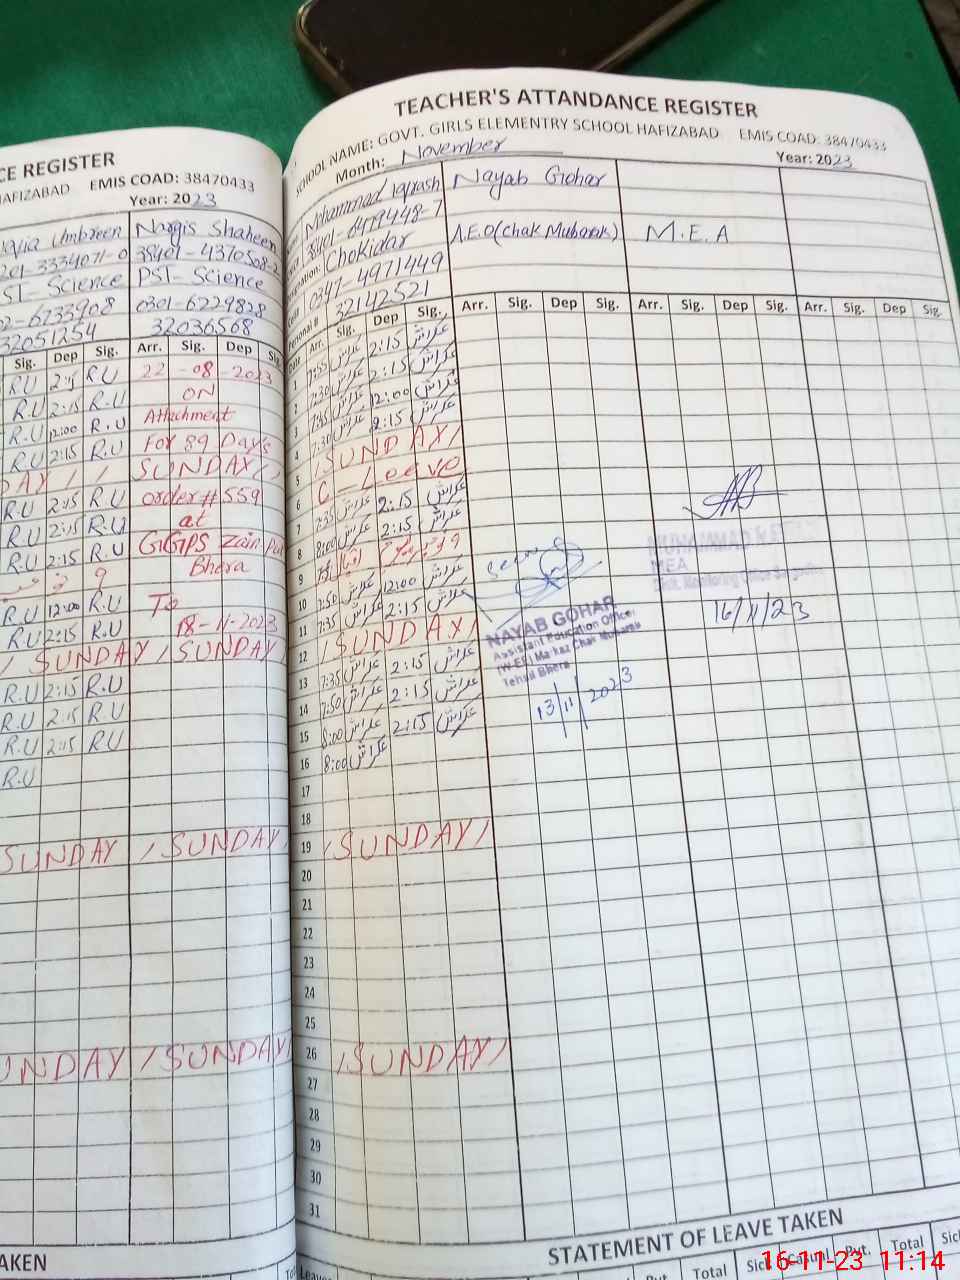 CE REGISTER
HAFIZABAD EMIS COAD: 38470433
Year: 2023
Umbreen Nargis Shaheen
201-3334071-0 38401-4370508-2
PST-Science PST-Science
02-6733908 0301-6229828
32051254 32036568
Sig. Dep Sig. Arr. Sig. Dep Sig
R.U 2:15 R.U 22 -08 -2023
R.U 2:15 R.U ON
R.U 12:00 R.U Attachment
R.U 2:15 R.U For 89 Day's
DAY / / SUNDAY /
R.U 2:15 R.U order # 559
R.U 2:15 R.U at
R.U 2:15 R.U GGPS Zain Pur
Bhera
R.U 12:00 R.U To
R.U 2:15 R.U 18-11-2023
/ SUNDAY / SUNDAY /
R.U 2:15 R.U
R.U 2:15 R.U
R.U 2:15 R.U
R.U
SUNDAY / SUNDAY /
UNDAY / SUNDAY /
AKEN
TEACHER'S ATTANDANCE REGISTER
SCHOOL NAME: GOVT. GIRLS ELEMENTRY SCHOOL HAFIZABAD EMIS COAD: 38470433
Month: November Year: 2023
Mohammad Iqrash Nayab Gohar
38401-0479448-7
Chokidar A.E.O (Chak Mubarak) M.E.A
0347-4971449
Personal # 32142521
Date Arr. Sig. Dep Sig. Arr. Sig. Dep Sig. Arr. Sig. Dep Sig. Arr. Sig. Dep Sig.
1 7:55 عکراش 2:15 عکراش
2 7:30 عکراش 2:15 عکراش
3 7:35 عکراش 12:00 عکراش
4 7:30 عکراش 2:15 عکراش
5 / SUNDAY /
6 C - Leeve
7 7:35 عکراش 2:15 عکراش
8 8:00 عکراش 2:15 عکراش
9 اقبال
10 7:50 عکراش 12:00 عکراش
11 7:35 عکراش 2:15 عکراش
12 / SUNDAY /
13 7:35 عکراش 2:15 عکراش
14 7:50 عکراش 2:15 عکراش
15 8:00 عکراش 2:15 عکراش
16 8:00 عکراش
17
18
19 / SUNDAY /
20
21
22
23
24
25
26 / SUNDAY /
27
28
29
30
31
NAYAB GOHAR
Assistant Education Officer
(W-EE) Markaz Chak Mubarak
Tehsil Bhera
13/11/2023
MUHAMMAD
MEA
16/11/23
STATEMENT OF LEAVE TAKEN
Leave Put Total Sick Casual Put. Total Sick
16-11-23 11:14